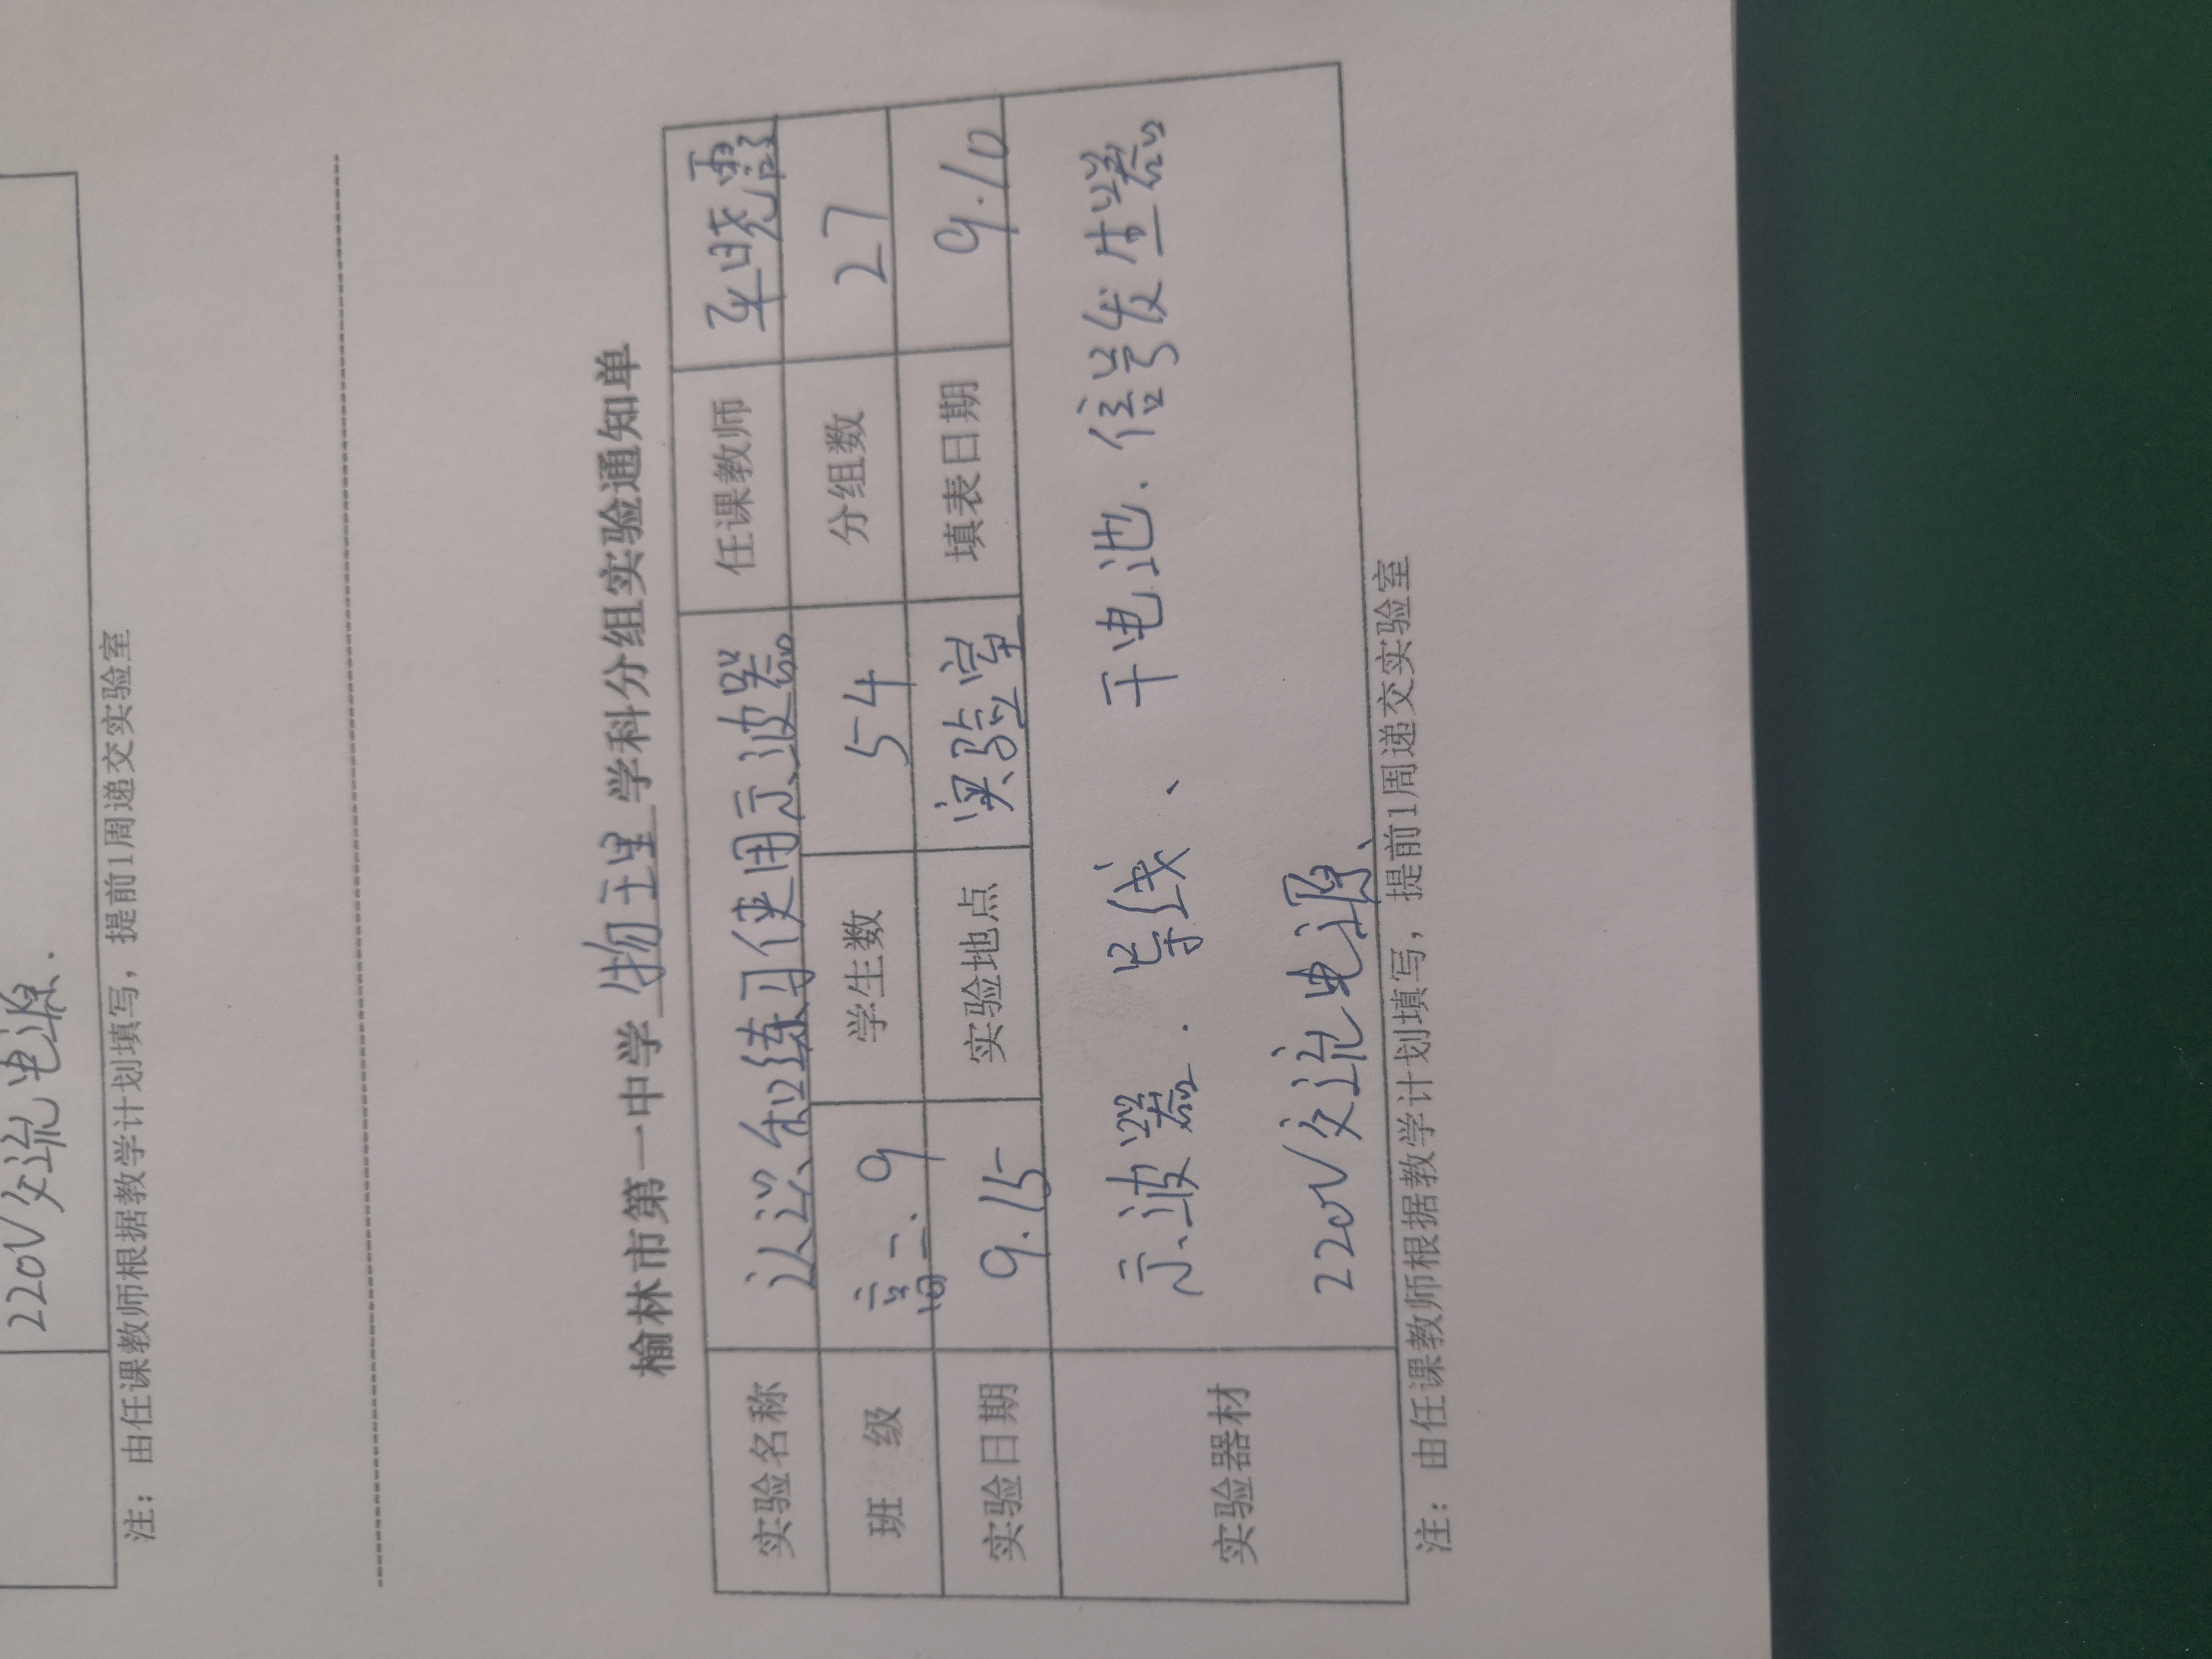 220V交流电源.
注：由任课教师根据教学计划填写，提前1周递交实验室
榆林市第一中学 物理 学科分组实验通知单
实验名称 认识和练习使用示波器 任课教师 晓霞
班 级 高二.9 学生数 54 分组数 27
实验日期 9.15 实验地点 实验室 填表日期 9.10
实验器材 示波器. 导线、干电池. 信号发生器
220V交流电源、
注：由任课教师根据教学计划填写，提前1周递交实验室